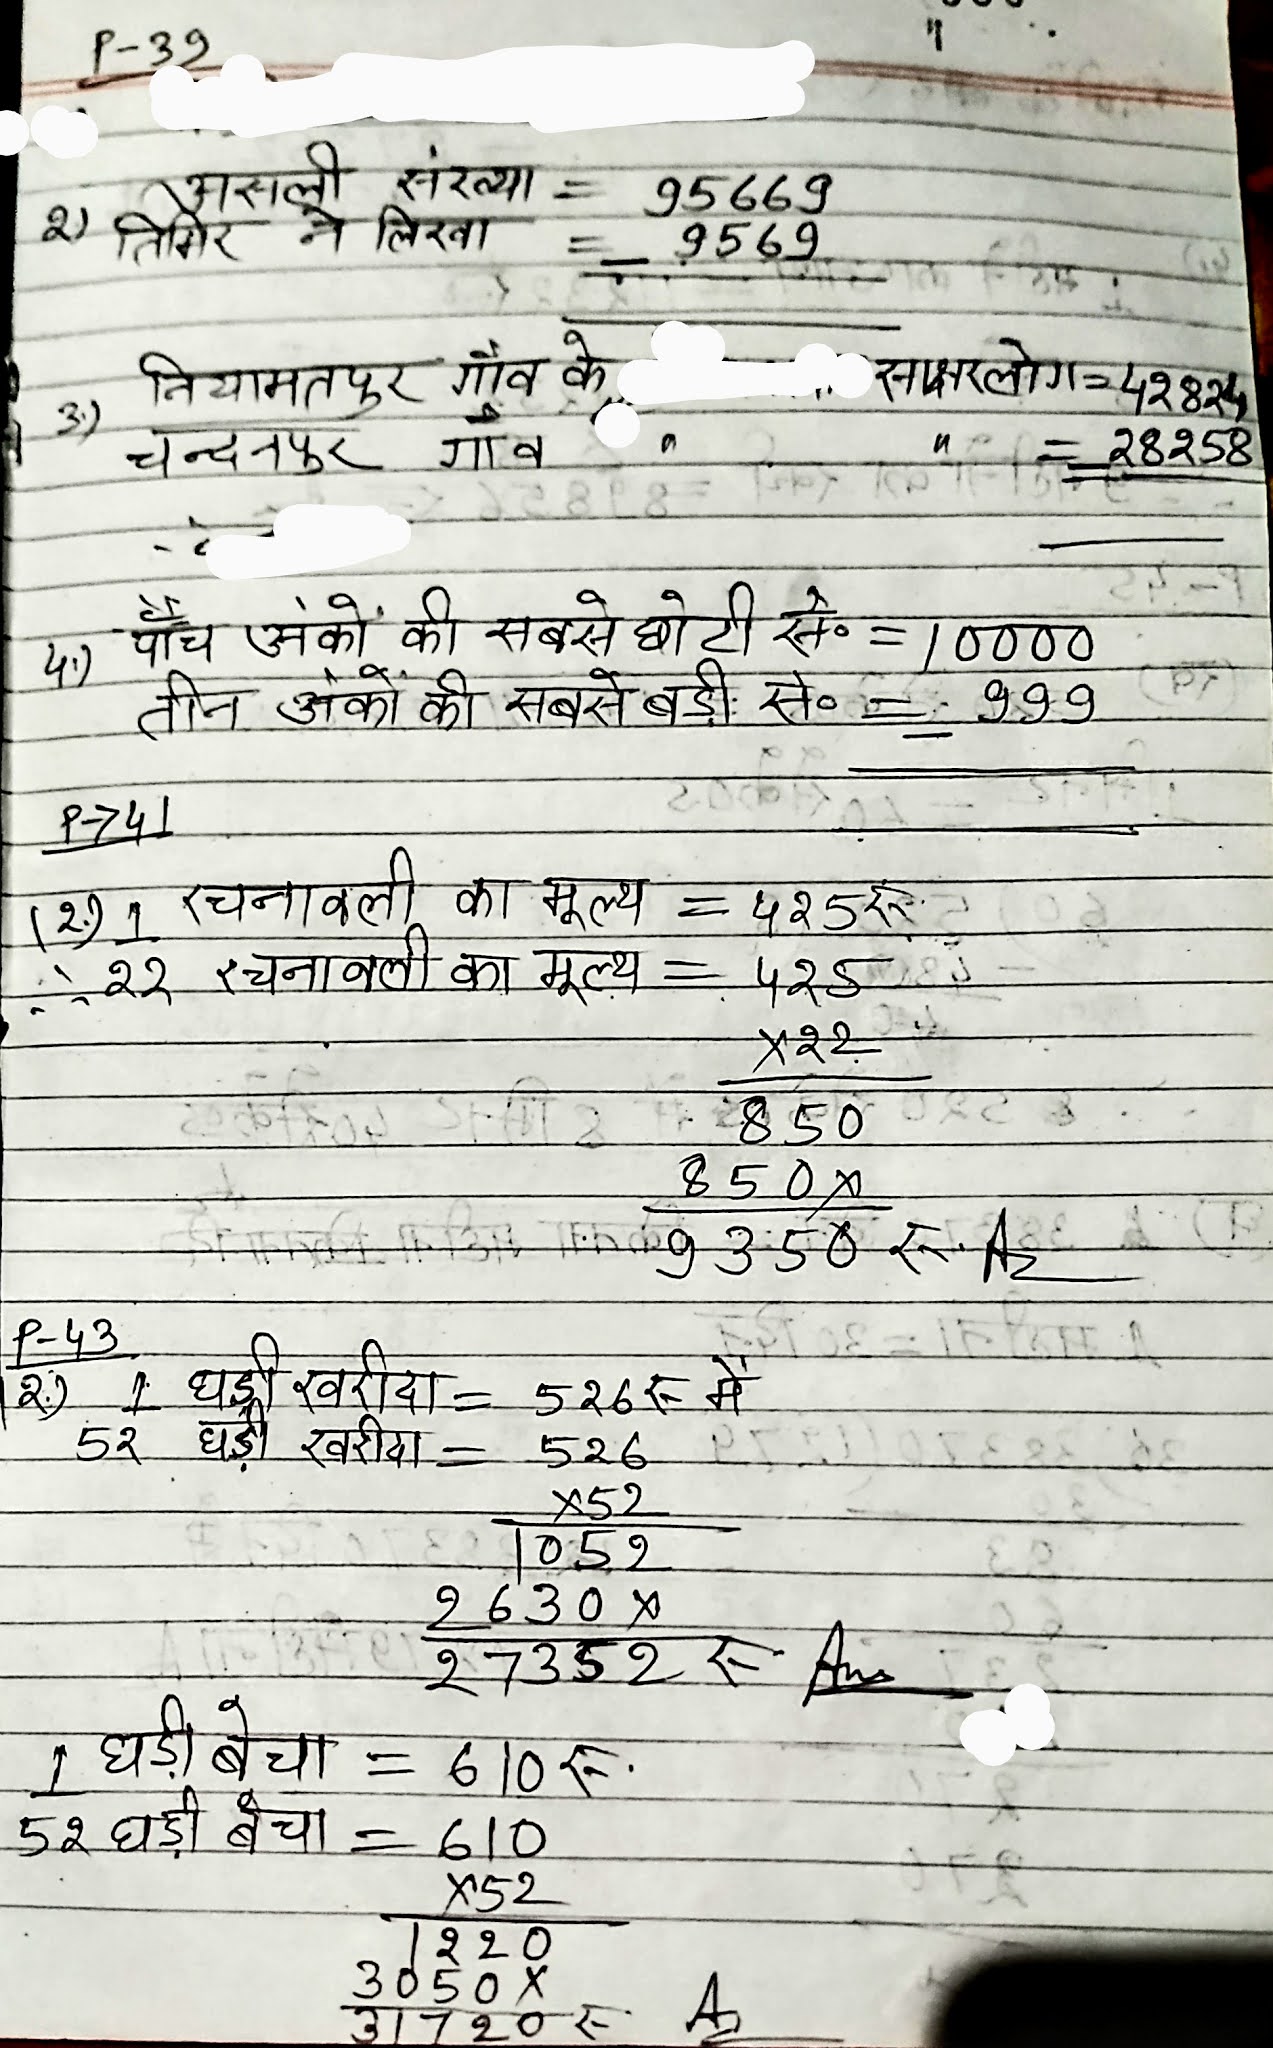 P-39
असली संख्या = 95669
2) तिमिर ने लिखा = - 9569
नियामतपुर गाँव के साक्षर लोग = 42824
3.) चन्दनपुर गाँव " " = - 28258
4.) पाँच अंकों की सबसे छोटी सं० = 10000
तीन अंकों की सबसे बड़ी सं० = - 999
P-741
(2.) 1 रचनावली का मूल्य = 425 रु.
∴ 22 रचनावली का मूल्य = 425
x22
850
850x
9350 रु. A
P-43
2.) 1 घड़ी खरीदा = 526 रु में
52 घड़ी खरीदा = 526
x52
1052
2630x
27352 रु. Ans
1 घड़ी बेचा = 610 रु.
52 घड़ी बेचा = 610
x52
1220
3050x
31720 रु. A